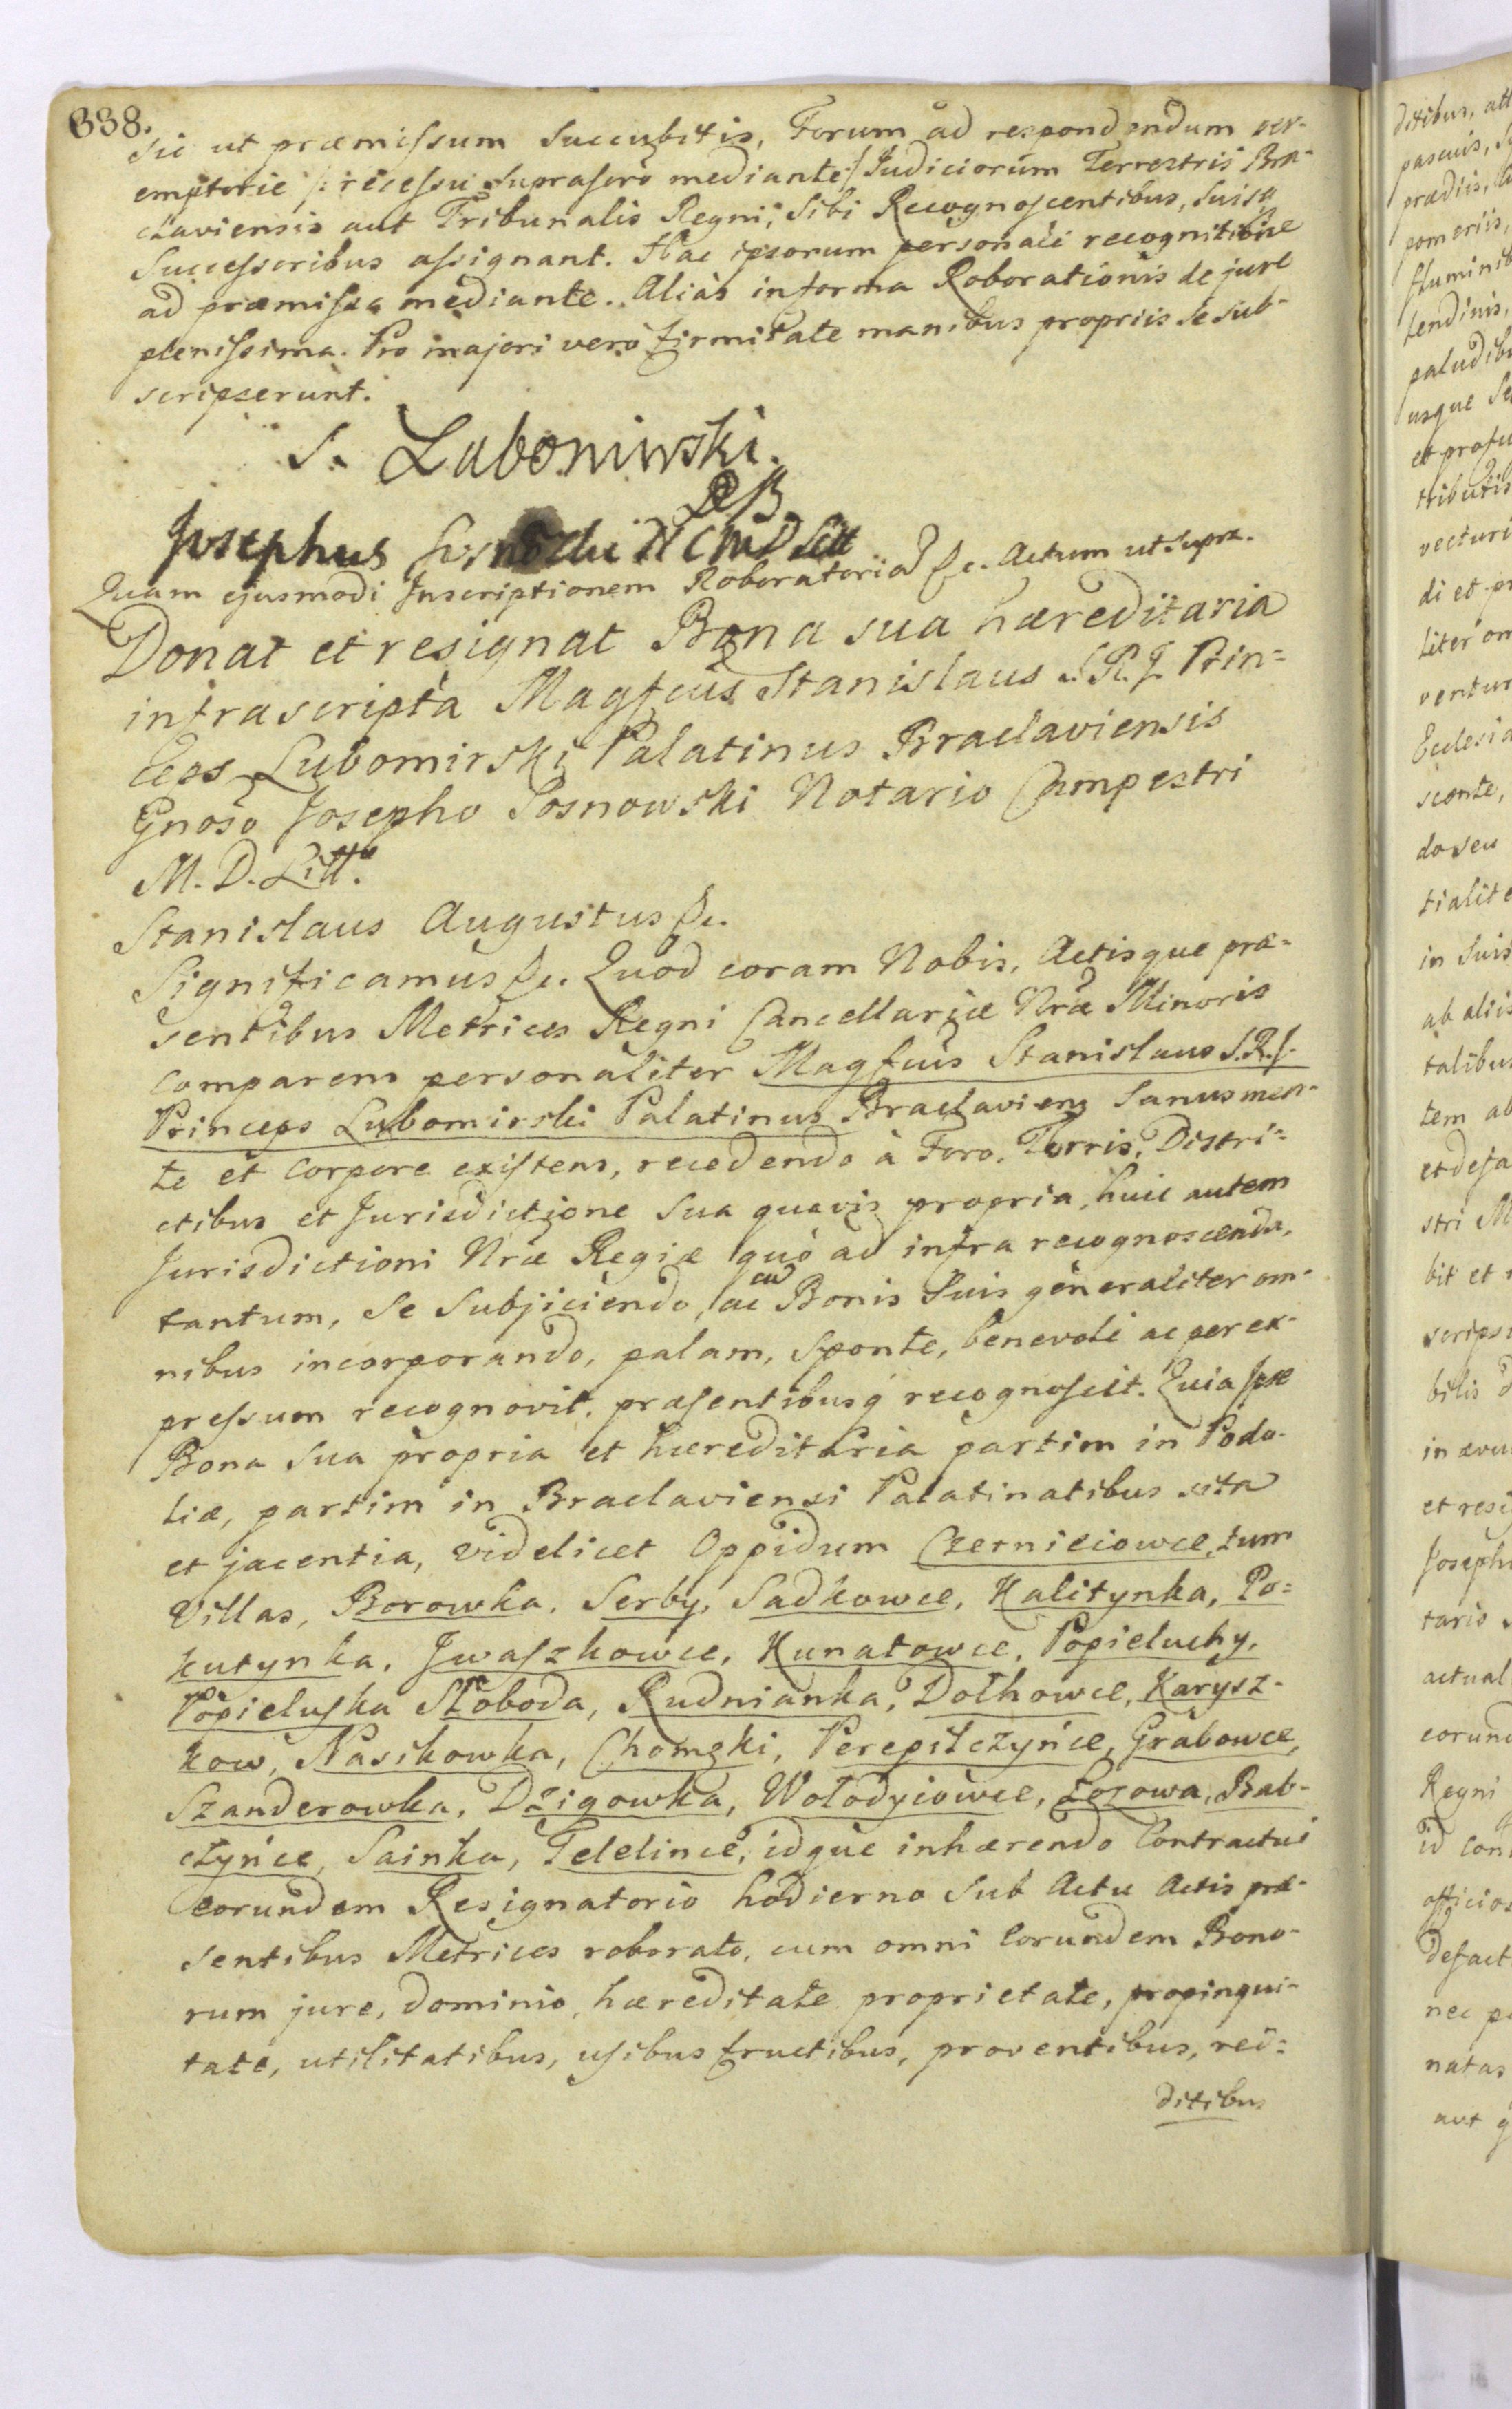 338.
sic ut præmissum succubitis, Forum ad respondendum per-
emptorie /: recessu suprascrò mediante :/ Judiciorum Terrestris Bra-
claviensis aut Tribunalis Regni, Sibi Recognoscentibus, suisq
Successoribus assignant. Hac ipsorum personali recognitione
ad præmissa mediante. Aliàs in forma Roborationis de jure
plenissima. Pro majori verò firmitate manibus propriis se sub-
scripserunt.
S. Lubomirski.
Josephus NCMD Litt
Quam ejusmodi Inscriptionem Roboratoria &c. Actum ut supra.
Donat et resignat Bona sua hæreditaria
infrascripta Magfcus Stanislaus S.R.J. Prin=
ceps Lubomirski Palatinus Braclaviensis
Gnoso Josepho Sosnowski Notario Campestri
M. D. Litt.
Stanislaus Augustus &c.
Significamus &c. Quod coram Nobis, Actisque præ=
sentibus Metrices Regni Cancellariæ Nræ Minoris
comparens personaliter Magfcus Stanislaus S.R.J.
Princeps Lubomirski Palatinus Braclaviens Sanus men-
te et Corpore existens, recedendo à Foro, Terris, Distri=
ctibus et Jurisdictione sua quavis propria, huic autem
Jurisdictioni Nræ Regiæ quò ad infra recognoscenda,
tantum, se subjiciendo, ac cũ Bonis Suis generaliter om-
nibus incorporando, palam, Sponte, benevolè ac per ex-
pressum recognovit, præsentibusq recognoscit. Quia Ipse
Bona sua propria et hæreditaria partim in Podo-
liæ, partim in Braclaviensi Palatinatibus sita
et jacentia, videlicet Oppidum Czerniciowce, tum
Villas, Borowka, Serby, Sadkowce, Kalitynka, Po=
kutynka, Jwaszkowce, Kunatowce, Popieluchy,
Popieluska Słoboda, Rudnianka, Dołhowce, Karysz-
kow, Nasikowka, Chomzki, Perepilczyńce, Grabowce,
Szanderowka, Dzigowka, Wołodyiowce, Łozowa, Bab-
czyńce, Sainka, Telelince, idque inhærendo Contractui
eorundem Resignatorio hodierno sub Actu Actis præ-
sentibus Metrices roborato, cum omni Eorundem Bono-
rum jure, dominio, hæreditate proprietate, propinqui-
tate, utilitatibus, usibus fructibus, proventibus, red=
ditibus